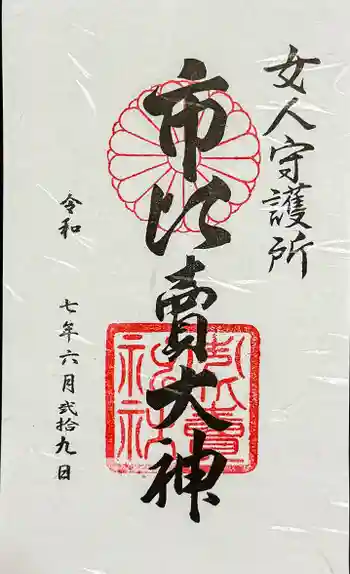 女人守護所
市比賣大神
令和 七年六月弐拾九日